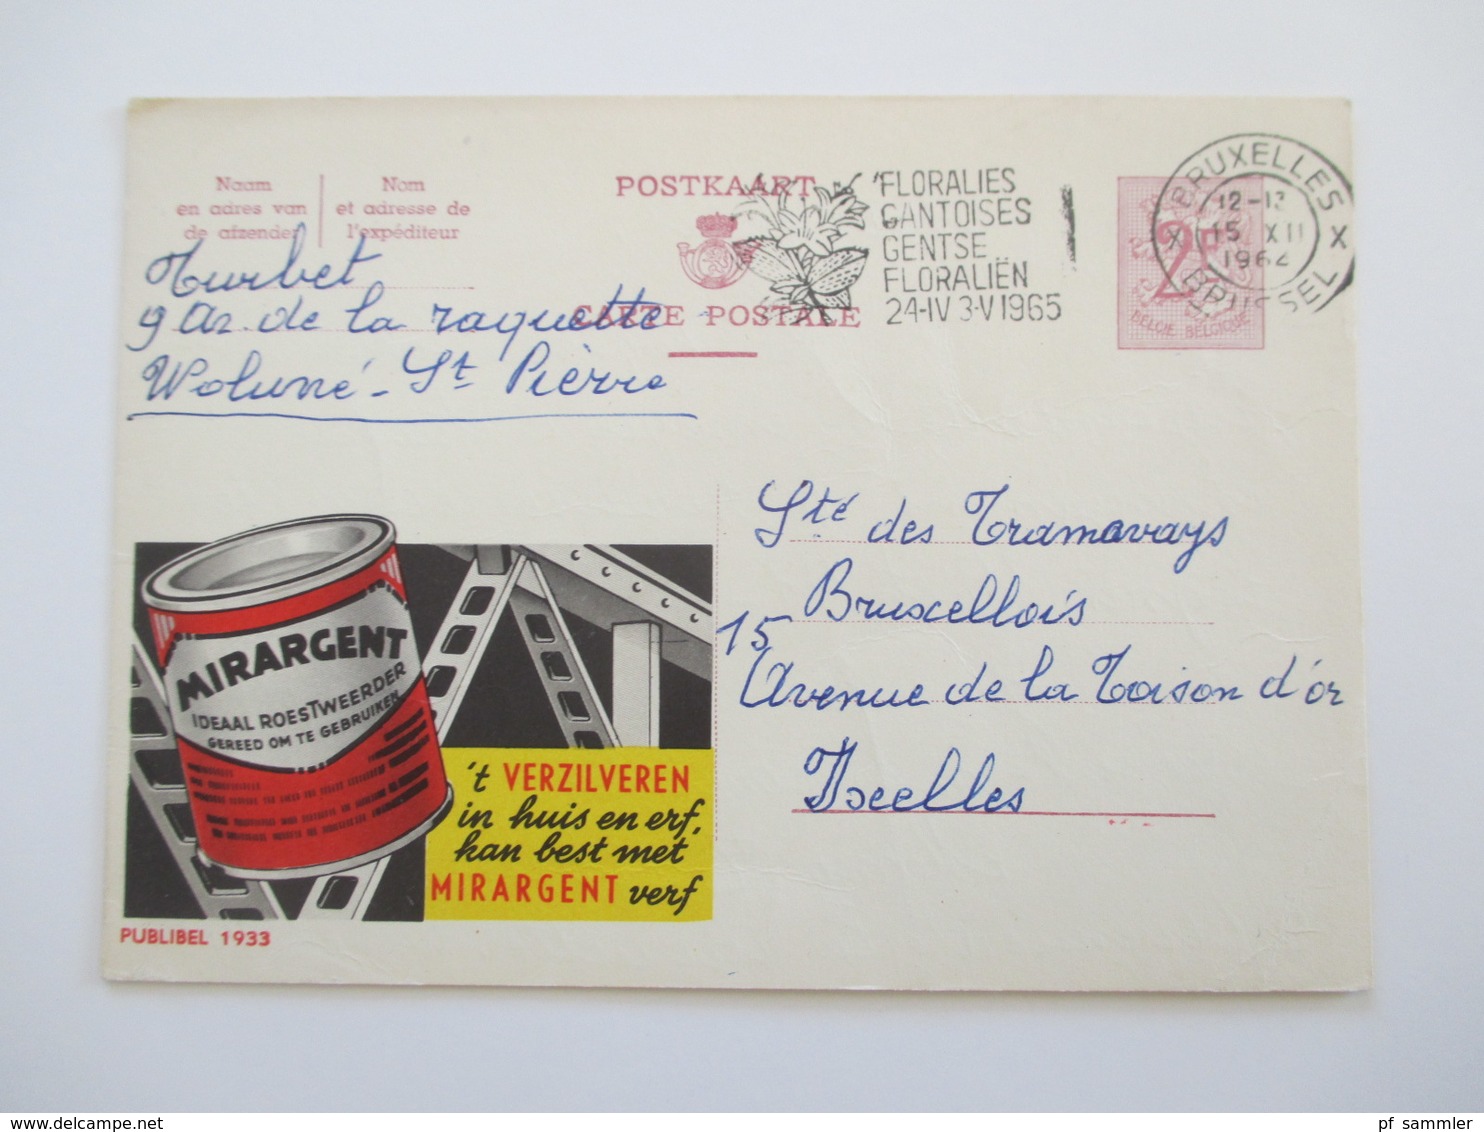 Naam
en adres van
de afzender
Nom
et adresse de
l'expéditeur
POSTKAART
CARTE POSTALE
FLORALIES
GANTOISES
GENTSE
FLORALIËN
24-IV 3-V 1965
BRUXELLES
X X
15 XII
BRUSSEL
2F
BELGIE BELGIQUE
Turbet
9 Av. de la raquette
Woluwé - St Pièrre
Sté des Tramways
Bruxellois
15
Avenue de la Toison d'or
Ixelles
MIRARGENT
IDEAAL ROESTWEERDER
GEREED OM TE GEBRUIKEN
't VERZILVEREN
in huis en erf,
kan best met
MIRARGENT verf
PUBLIBEL 1933
pf_sammler